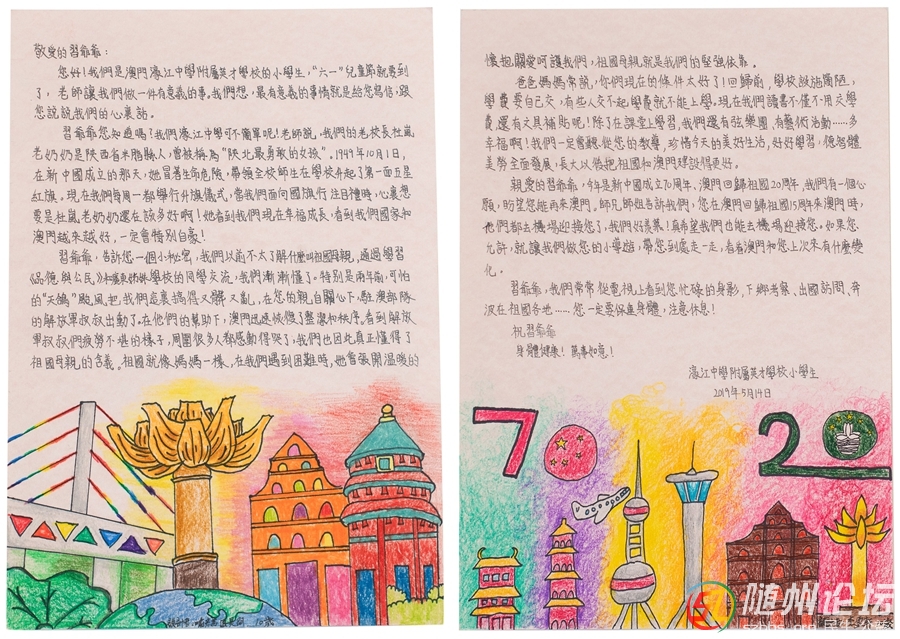 敬爱的習爺爺：
您好！我們是澳門濠江中學附屬英才學校的小學生，“六一”兒童節就要到
了，老師讓我們做一件有意義的事。我們想，最有意義的事情就是給您寫信，跟
您說說我們的心裏話。
習爺爺您知道嗎！我們濠江中學可不簡單呢！老師說，我們的老校長杜嵐
老奶奶是陝西省米脂縣人，曾被稱為“陝北最勇敢的女孩”。1949年10月1日，
在新中國成立的那天，她冒著生命危險，帶領全校師生在學校升起了第一面五星
紅旗。現在我們每周一都舉行升旗儀式，當我們面向國旗行注目禮時，心裏想
要是杜嵐老奶奶還在該多好啊！她看到我們現在幸福成長，看到我們國家和
澳門越來越好，一定會特別自豪！
習爺爺，告訴您一個小秘密，我們以前不太了解什麼叫祖國母親，通過學習
《品德與公民》和學校的同學交流，我們漸漸懂了。特別是兩年前，可怕
的“天鴿”颱風把我們這裏搞得又髒又亂，在您的親自關心下，駐澳部隊
的解放軍叔叔出動了。在他們的幫助下，澳門迅速恢復了整潔和秩序。看到解放
軍叔叔們疲勞不堪的樣子，周圍很多人都感動得哭了，我們也因此真正懂得了
祖國母親的含義。祖國就像媽媽一樣，在我們遇到困難時，她會張開溫暖的
懷抱，關愛呵護我們，祖國母親就是我們的堅強依靠。
爸爸媽媽常說，你們現在的條件太好了！回歸前，學校設施簡陋，
學費要自己交，有些人交不起學費就不能上學。現在我們讀書不僅不用交學
費，還有文具補貼呢！除了在課堂上學習，我們還有弦樂團，有藝術活動……多
幸福啊！我們一定會聽從您的教導，珍惜今天的美好生活，好好學習，德智體
美勞全面發展，長大以後把祖國和澳門建設得更好。
親愛的習爺爺，今年是新中國成立70周年、澳門回歸祖國20周年，我們有一個心
願，盼望您能再來澳門。師兄師姐告訴我們，您在澳門回歸祖國15周年來澳門時，
他們都去機場迎接您了，我們好羨慕！真希望我們也能去機場迎接您。如果您
允許，就讓我們做您的小導遊，帶您到處走一走，看看澳門和您上次來有什麼變
化。
習爺爺，我們常常從電視上看到您忙碌的身影，下鄉考察、出國訪問、奔
波在祖國各地……您一定要保重身體，注意休息！
祝習爺爺
身體健康！萬事如意！
濠江中學附屬英才學校小學生
2019年5月14日
70
20
随州论坛